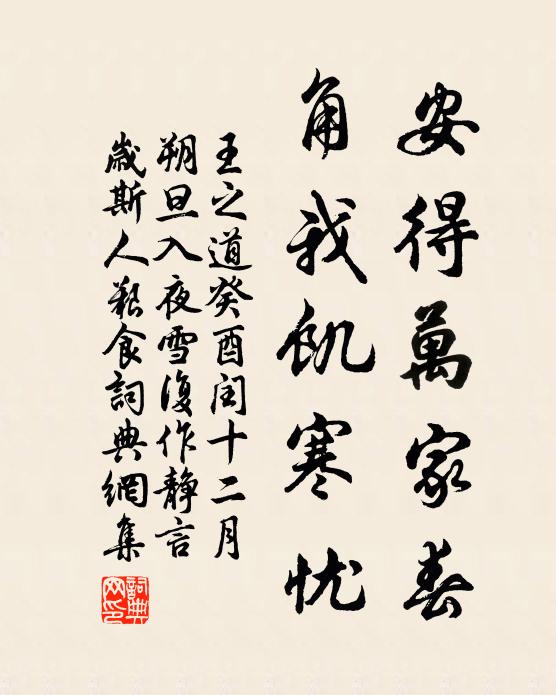 安得萬家春
角我飢寒忧
王之道癸酉闰十二月
朔旦入夜雪復作靜言
歲斯人艱食詞典網集
詞典网印